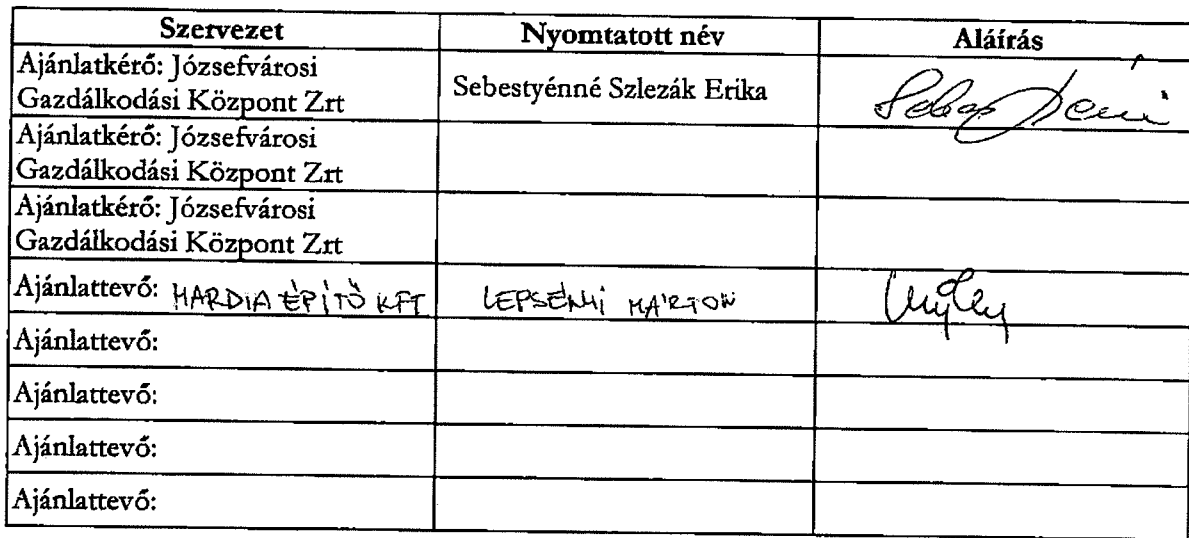 Szervezet Nyomtatott név Aláírás
Ajánlatkérő: Józsefvárosi
Gazdálkodási Központ Zrt
Sebestyénné Szlezák Erika
Ajánlatkérő: Józsefvárosi
Gazdálkodási Központ Zrt
Ajánlatkérő: Józsefvárosi
Gazdálkodási Központ Zrt
Ajánlattevő: HARDIA ÉPÍTŐ KFT LEPSÉNYI MÁRTON
Ajánlattevő:
Ajánlattevő:
Ajánlattevő:
Ajánlattevő: